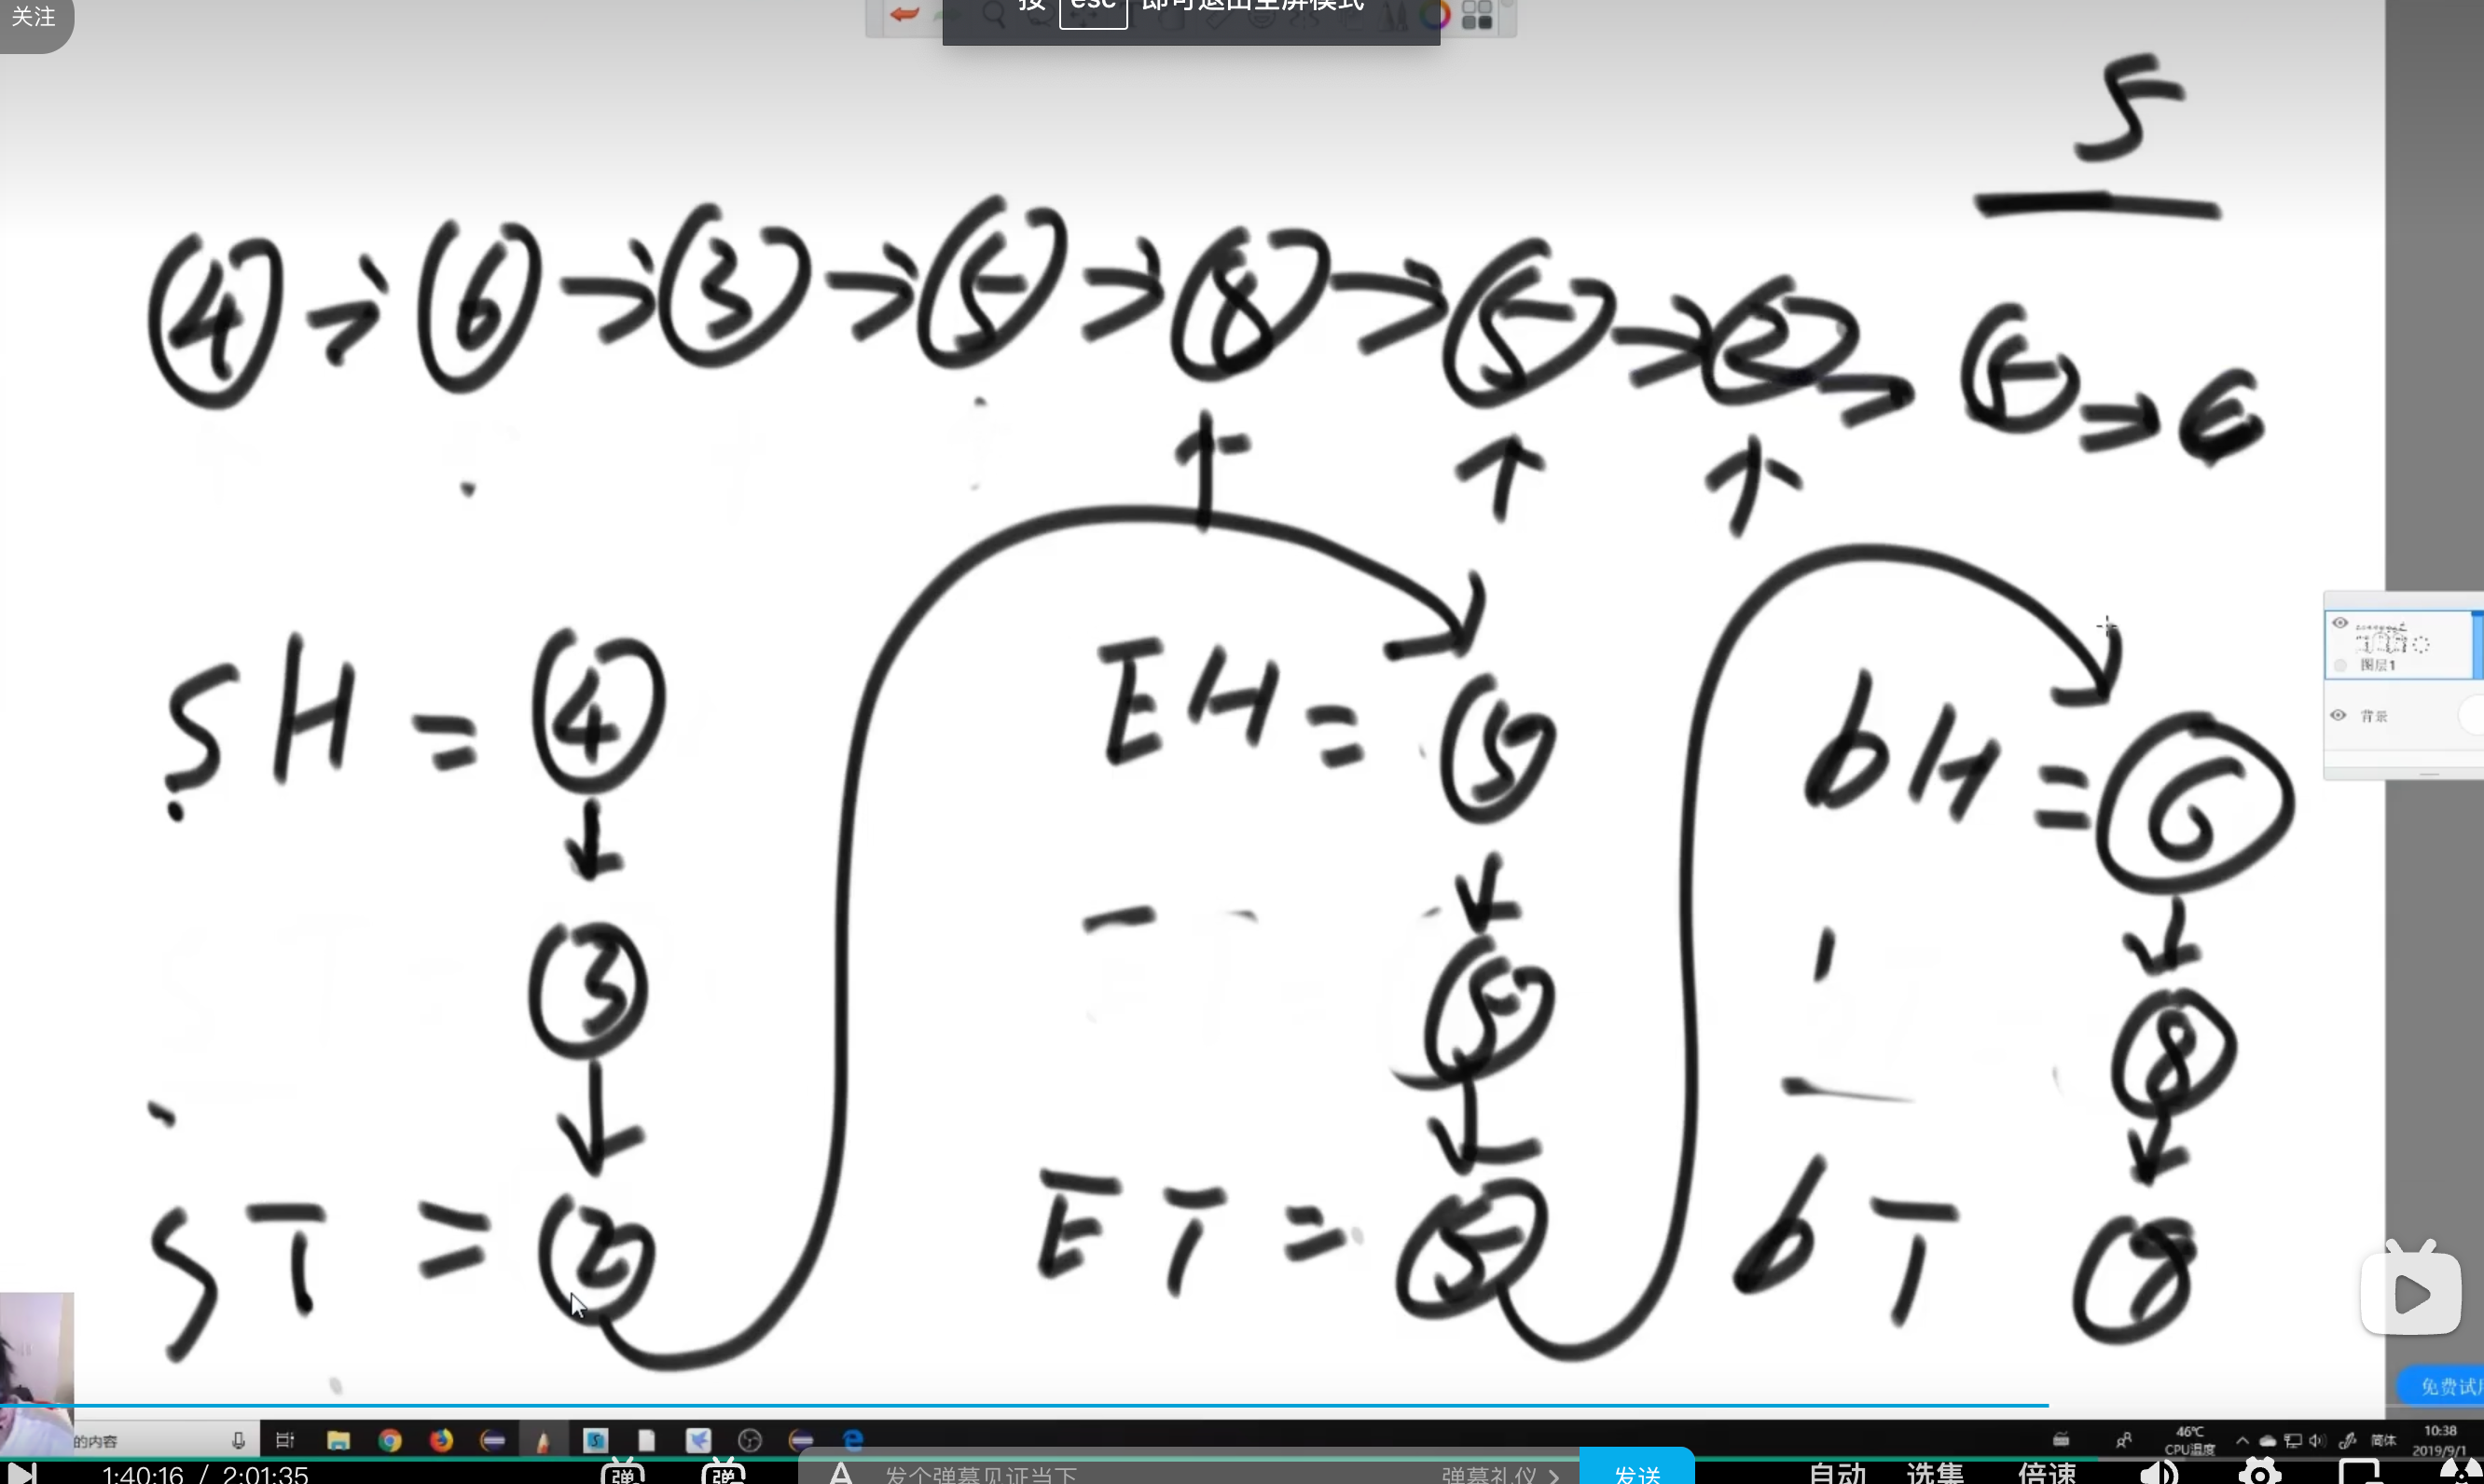 关注
按 esc 即可退出全屏模式
5
4 → 6 → 3 → 5 → 8 → 5 → 2 → 5 →
SH = 4
3
ST = 2
EH = 5
5
ET = 5
bH = 6
8
bT 8
图层1
背景
免费试用
的内容
46℃
CPU温度
简体
10:38
2019/9/1
1:40:16 / 2:01:35
弹
弹
A
发个弹幕见证当下
弹幕礼仪 >
发送
自动
选集
倍速